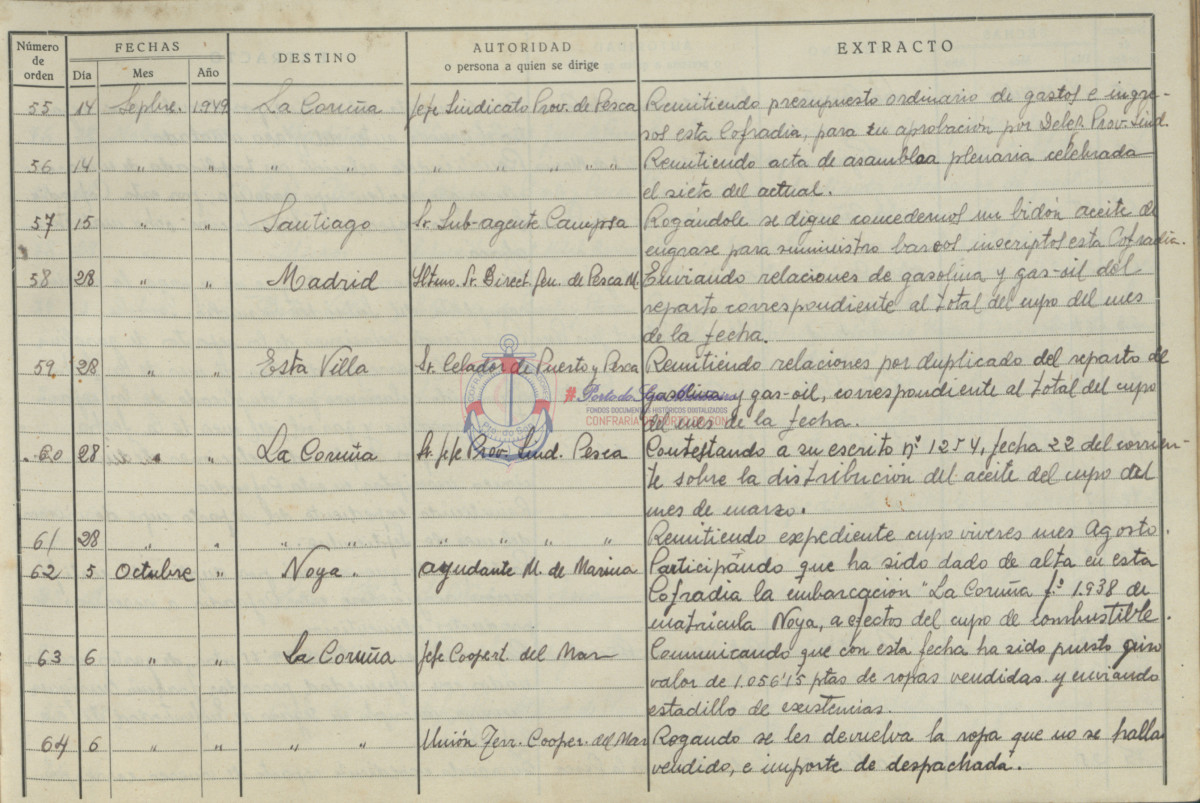 Número de orden FECHAS DESTINO AUTORIDAD o persona a quien se dirige EXTRACTO
Día Mes Año
55 14 Sepbre. 1949 La Coruña Jefe Sindicato Prov. de Pesca Remitiendo presupuesto ordinario de gastos e ingre-
sos esta Cofradía, para su aprobación por Deleg. Prov. Sind.
56 14 " " " " " " " " Remitiendo acta de asamblea plenaria celebrada
el siete del actual.
57 15 " " Santiago Sr. Sub-agente Campsa Rogándole se digne concedernos un bidón aceite de
engrase para suministro barcos inscriptos esta Cofradía.
58 28 " " Madrid Iltmo. Sr. Direct. Gen. de Pesca M. Enviando relaciones de gasolina y gas-oil del
reparto correspondiente al total del cupo del mes
de la fecha.
59 28 " " Esta Villa Sr. Celador de Puerto y Pesca Remitiendo relaciones por duplicado del reparto de
gasolina y gas-oil, correspondiente al total del cupo
del mes de la fecha.
60 28 " " La Coruña Sr. Jefe Prov. Sind. Pesca Contestando a su escrito nº 1254, fecha 22 del corrien-
te sobre la distribución del aceite del cupo del
mes de marzo.
61 28 " " " " " " " " Remitiendo expediente cupo viveres mes Agosto.
62 5 Octubre " Noya. ayudante M. de Marina Participando que ha sido dado de alta en esta
Cofradía la embarcación "La Coruña f.º 1.938 de
matricula Noya, a efectos del cupo de combustible.
63 6 " " La Coruña Jefe Coopert. del Mar Comunicando que con esta fecha ha sido puesto giro
valor de 1.056'15 ptas de ropas vendidas y enviando
estadillo de existencias.
64 6 " " " " Unión Terr. Cooper. del Mar Rogando se les devuelva la ropa que no se halla
vendido, e importe de despachada.
COFRADIA
Pto. do Son
#PortodoSonMariñeiro
FONDOS DOCUMENTAIS HISTÓRICOS DIGITALIZADOS
CONFRARÍA DE PORTO DO SON